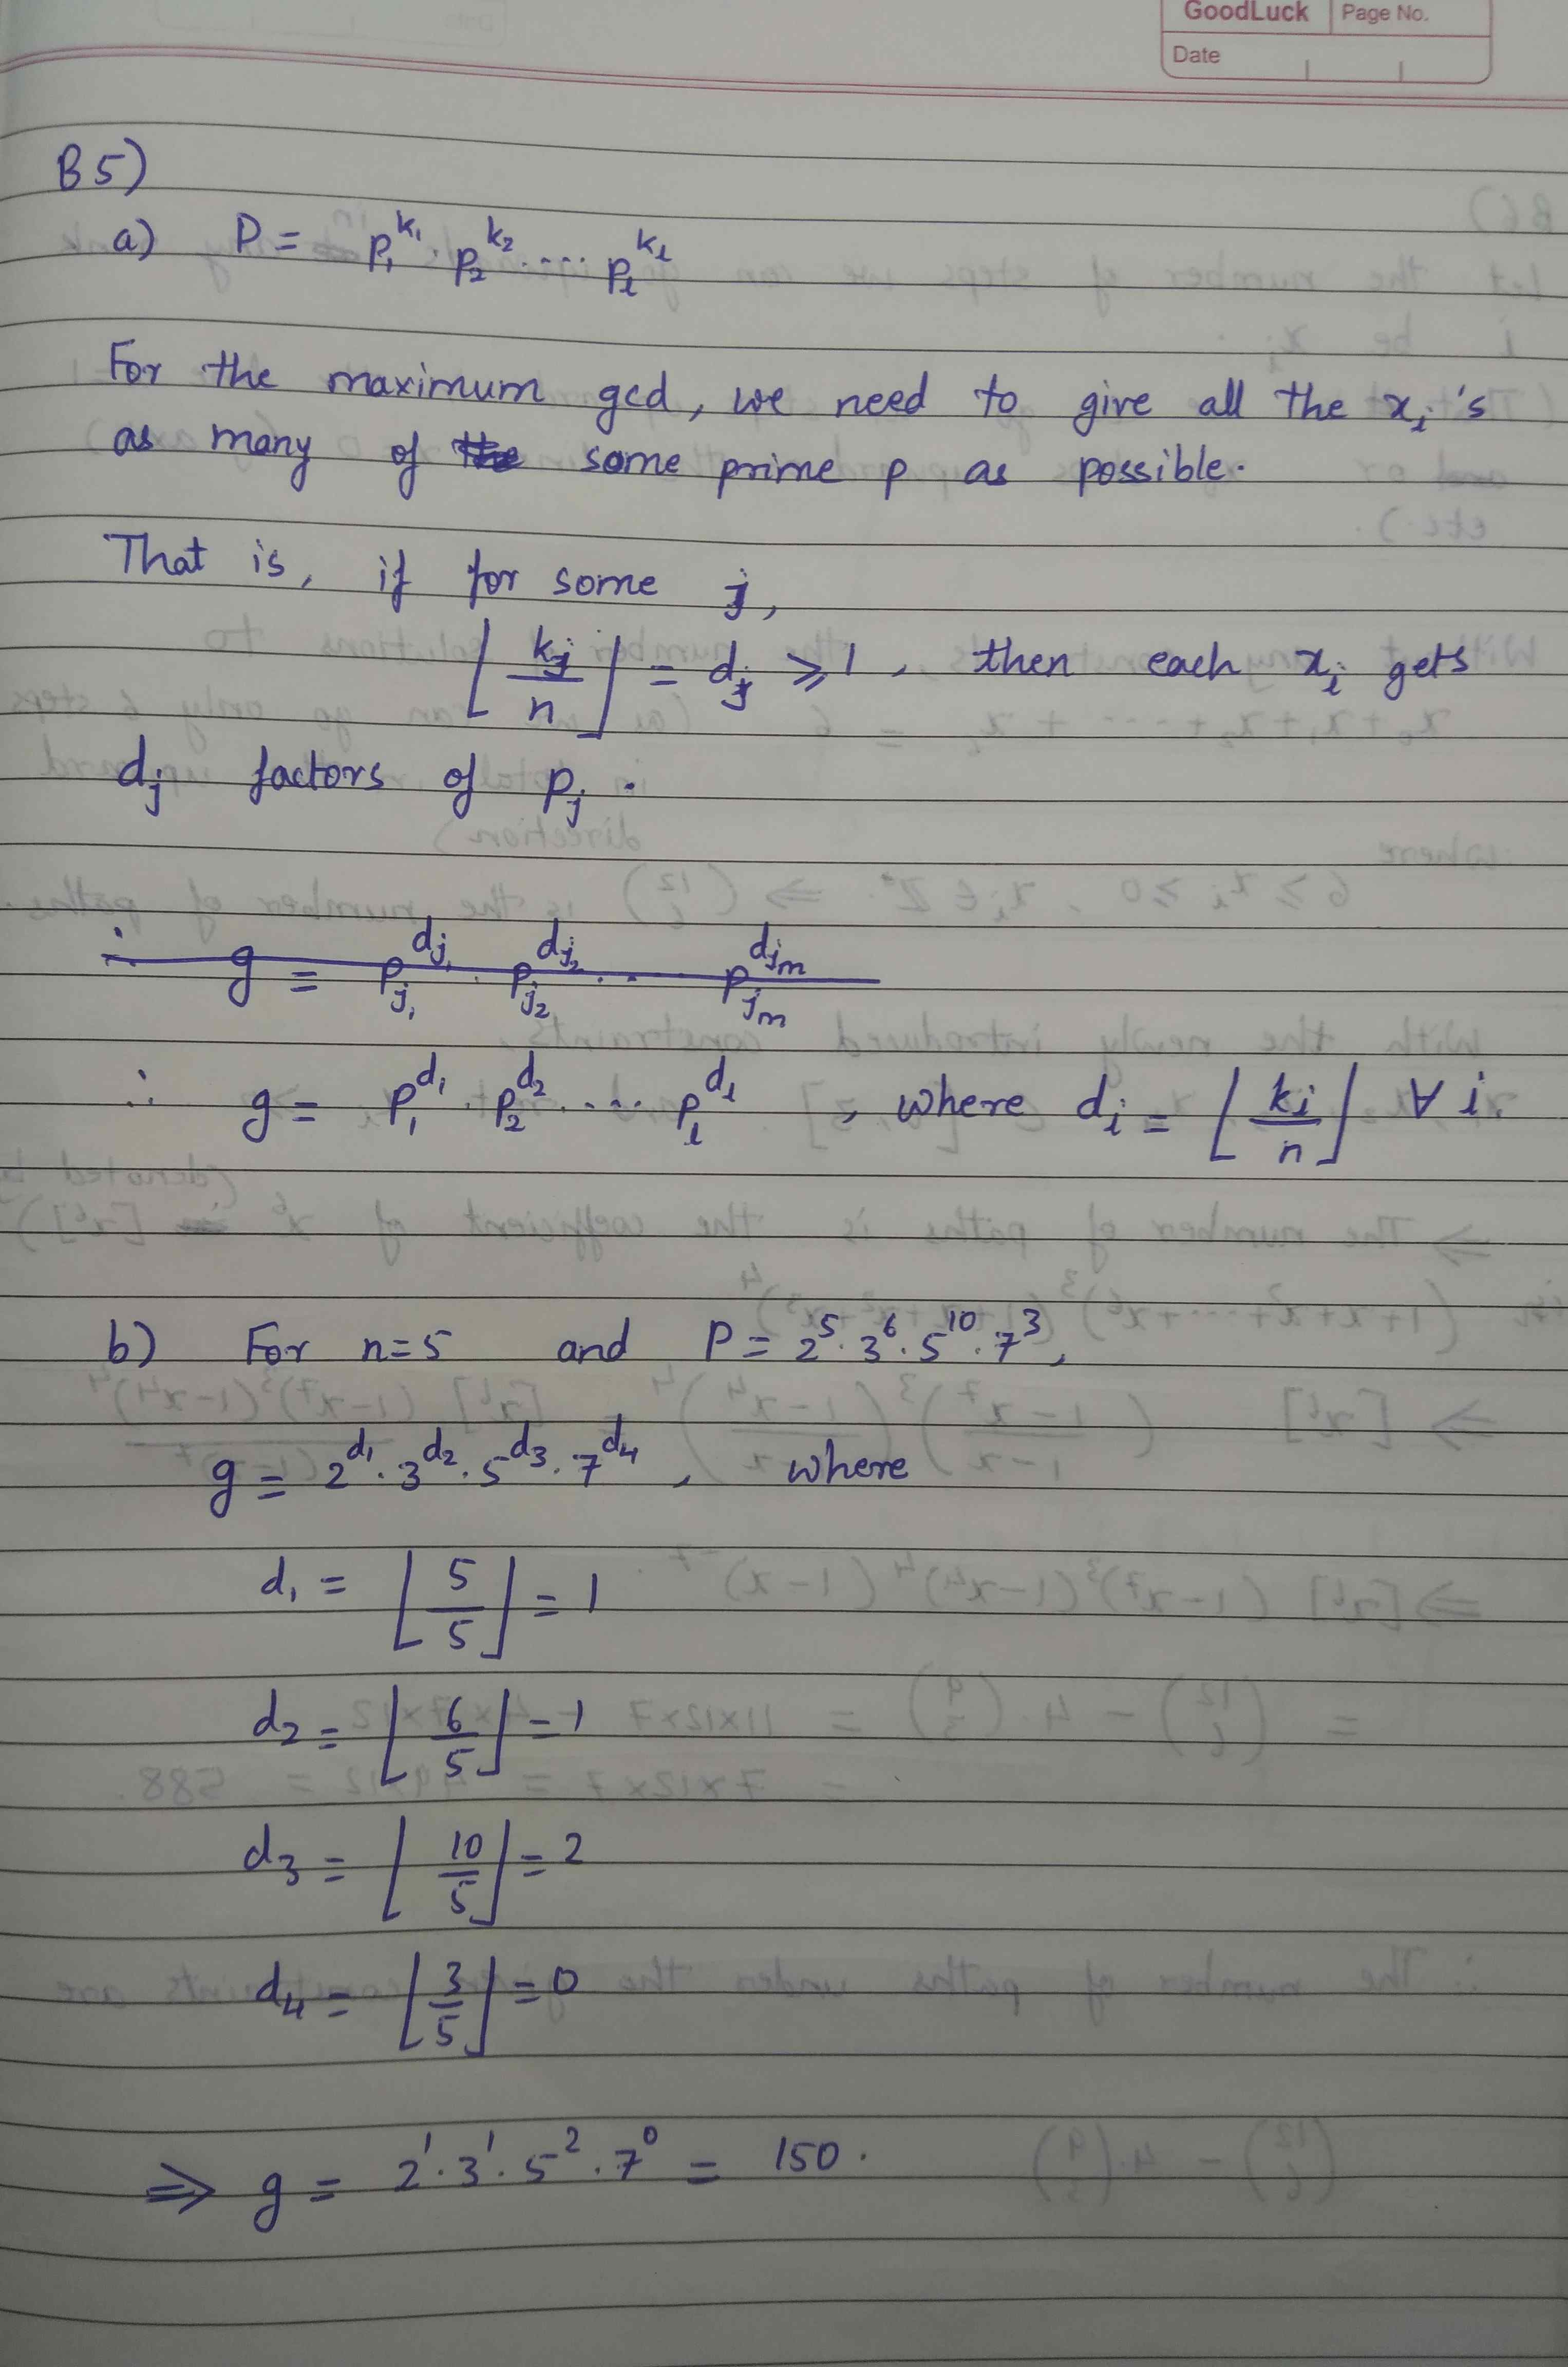 GoodLuck Page No.
Date
B5)
a) P = p₁^k₁ · p₂^k₂ ···· p_l^k_l
For the maximum gcd, we need to give all the xᵢ's
as many of the same prime p as possible.
That is, if for some j,
⌊kⱼ/n⌋ = dⱼ ⩾ 1, then each xᵢ gets
dⱼ factors of pⱼ.
∴ g = p_j₁^dj₁ · p_j₂^dj₂ · ·· p_jm^djm
∴ g = p₁^d₁ · p₂^d₂ ···· p_l^d_l, where dᵢ = ⌊kᵢ/n⌋ ∀ i
b) For n=5 and P = 2⁵·3⁶·5¹⁰·7³,
g = 2^d₁·3^d₂·5^d₃·7^d₄, where
d₁ = ⌊5/5⌋ = 1
d₂ = ⌊6/5⌋ = 1
d₃ = ⌊10/5⌋ = 2
d₄ = ⌊3/5⌋ = 0
⇒ g = 2¹·3¹·5²·7⁰ = 150.